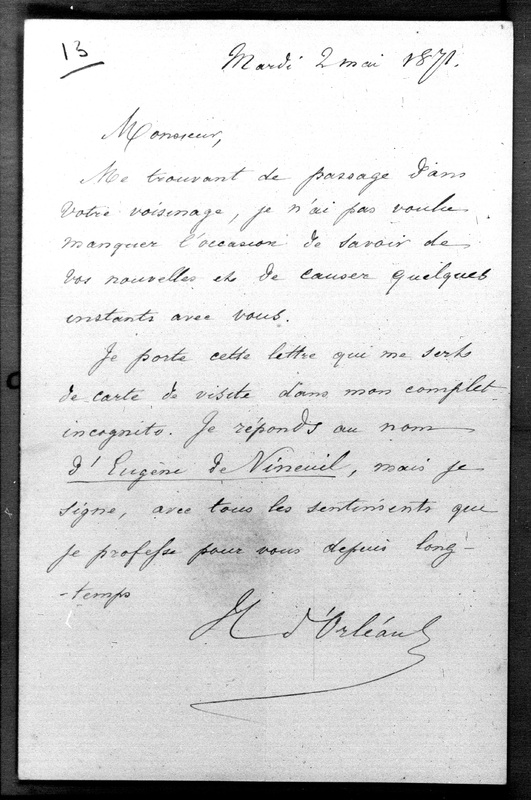 13
Mardi 2 mai 1871.
Monsieur,
Me trouvant de passage dans
votre voisinage, je n'ai pas voulu
manquer l'occasion de savoir de
vos nouvelles et de causer quelques
instants avec vous.
Je porte cette lettre qui me sert
de carte de visite dans mon complet
incognito. Je réponds au nom
d'Eugène de Nineuil, mais je
signe, avec tous les sentiments que
je professe pour vous depuis long-
-temps
H d'Orléans